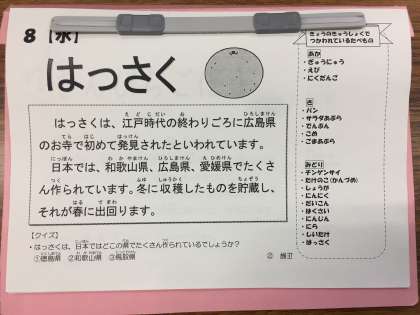 8 【水】
はっさく
はっさくは、江戸時代の終わりごろに広島県
のお寺で初めて発見されたといわれています。
日本では、和歌山県、広島県、愛媛県でたくさ
ん作られています。冬に収穫したものを貯蔵し、
それが春に出回ります。
【クイズ】
・はっさくは、日本ではどこの県でたくさん作られているでしょうか?
①徳島県 ②和歌山県 ③鳥取県
きょうのきゅうしょくで
つかわれているたべもの
あか
・ぎゅうにゅう
・えび
・にくだんご
き
・パン
・サラダあぶら
・でんぷん
・こめ
・ごまあぶら
みどり
・チンゲンサイ
・たけのこ(かんづめ)
・しょうが
・にんにく
・だいこん
・はくさい
・にんじん
・にら
・しいたけ
・はっさく